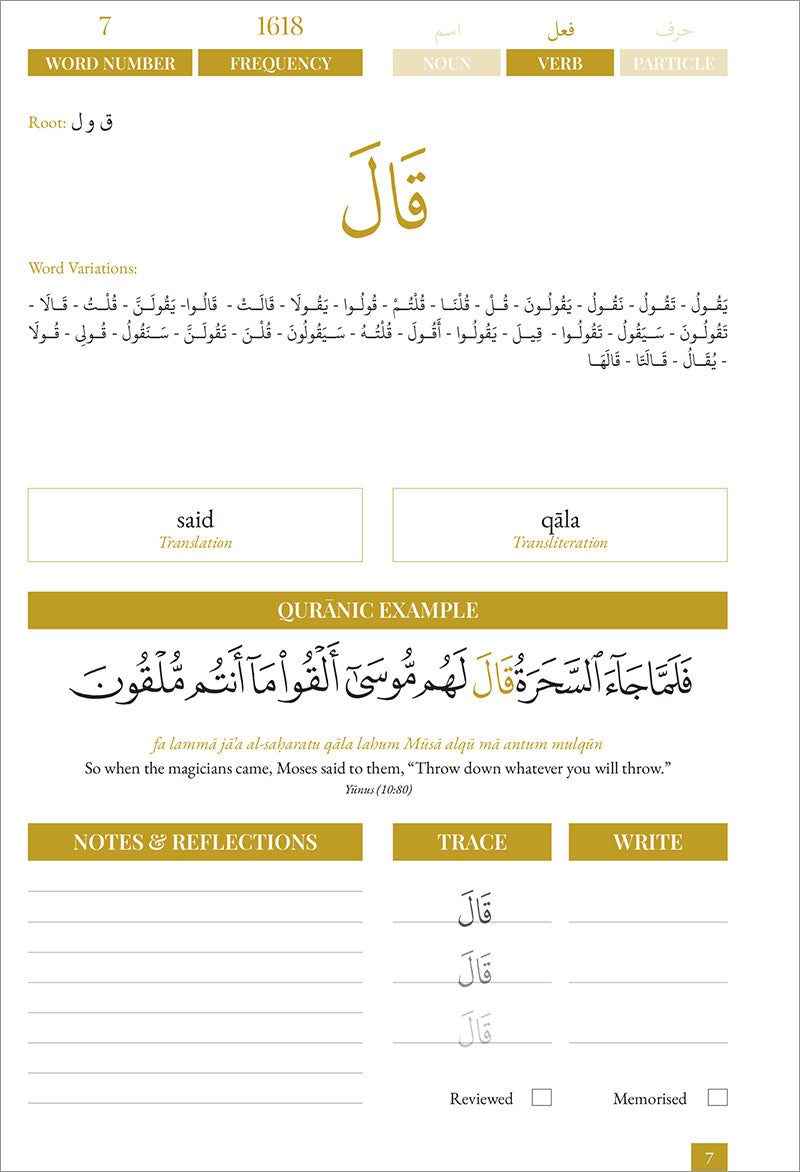 7 1618 اسم فعل حرف
WORD NUMBER FREQUENCY NOUN VERB PARTICLE
Root: ق و ل
قَالَ
Word Variations:
يَقُــولُ - تَقُــولُ - نَقُــولُ - يَقُولُــونَ - قُــلْ - قُلْنَــا - قُلْتُــمْ - قُولُــوا - يَقُــولَا - قَالَــتْ - قَالُــوا- يَقُولَــنَّ - قُلْــتُ - قَــالَا -
تَقُولُــونَ - سَــيَقُولُ - تَقُولُــوا - قِيــلَ - يَقُولُــوا - أَقُــولَ - قُلْتُــهُ - سَــيَقُولُونَ - قُلْــنَ - تَقُولَــنَّ - سَــنَقُولُ - قُــولِي - قُــولَا
- يُقَــالُ - قَــالَتَا - قَالَهَــا
said qāla
Translation Transliteration
QURĀNIC EXAMPLE
فَلَمَّا جَآءَ ٱلسَّحَرَةُ قَالَ لَهُم مُّوسَىٰٓ أَلْقُوا۟ مَآ أَنتُم مُّلْقُونَ
fa lammā jā’a al-saḥaratu qāla lahum Mūsā alqū mā antum mulqūn
So when the magicians came, Moses said to them, “Throw down whatever you will throw.”
Yūnus (10:80)
NOTES & REFLECTIONS TRACE WRITE
قَالَ
قَالَ
قَالَ
Reviewed Memorised
7